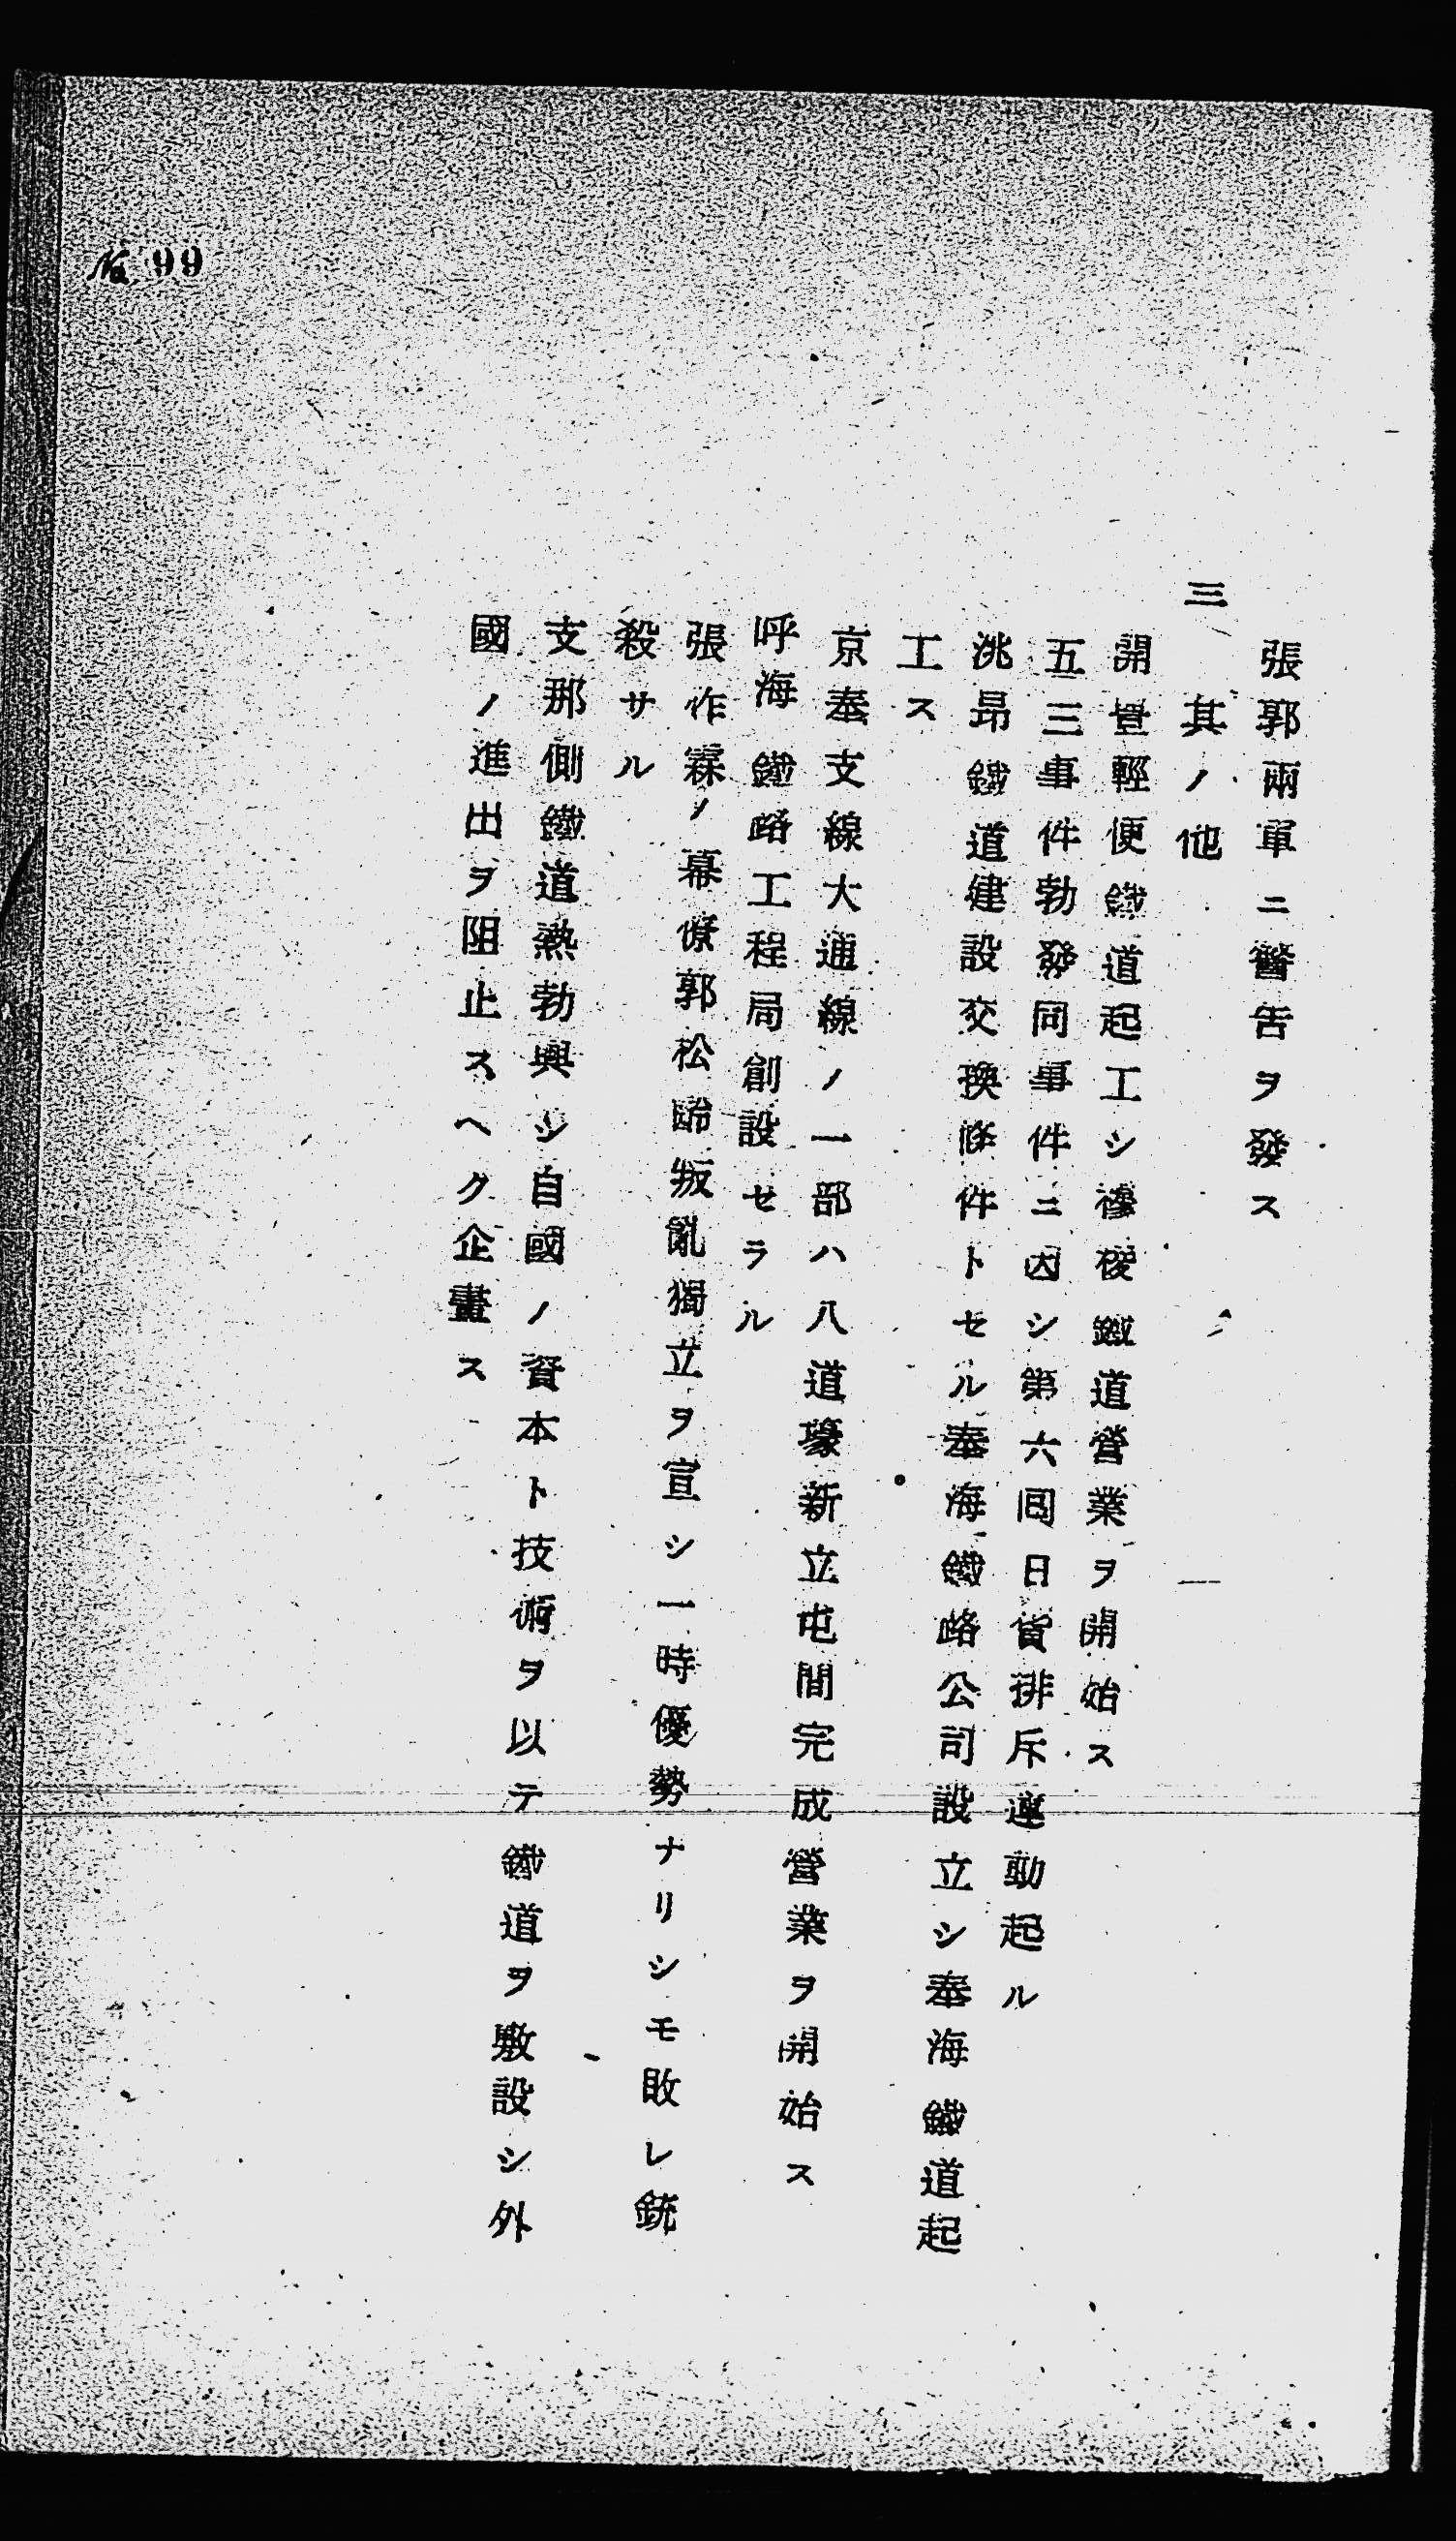 張郭兩軍ニ警告ヲ發ス
三 其ノ他
開豐輕便鐵道起工シ穆稜鐵道營業ヲ開始ス
五三事件勃發同事件ニ因シ第六囘日貨排斥運動起ル
洮昂鐵道建設交換條件トセル奉海鐵路公司設立シ奉海鐵道起
工ス
京奉支線大通線ノ一部ハ八道壕新立屯間完成營業ヲ開始ス
呼海鐵路工程局創設セラル
張作霖ノ幕僚郭松齡叛亂獨立ヲ宣シ一時優勢ナリシモ敗レ銃
殺サル
支那側鐵道熱勃興シ自國ノ資本ト技術ヲ以テ鐵道ヲ敷設シ外
國ノ進出ヲ阻止スヘク企畫ス
No 99